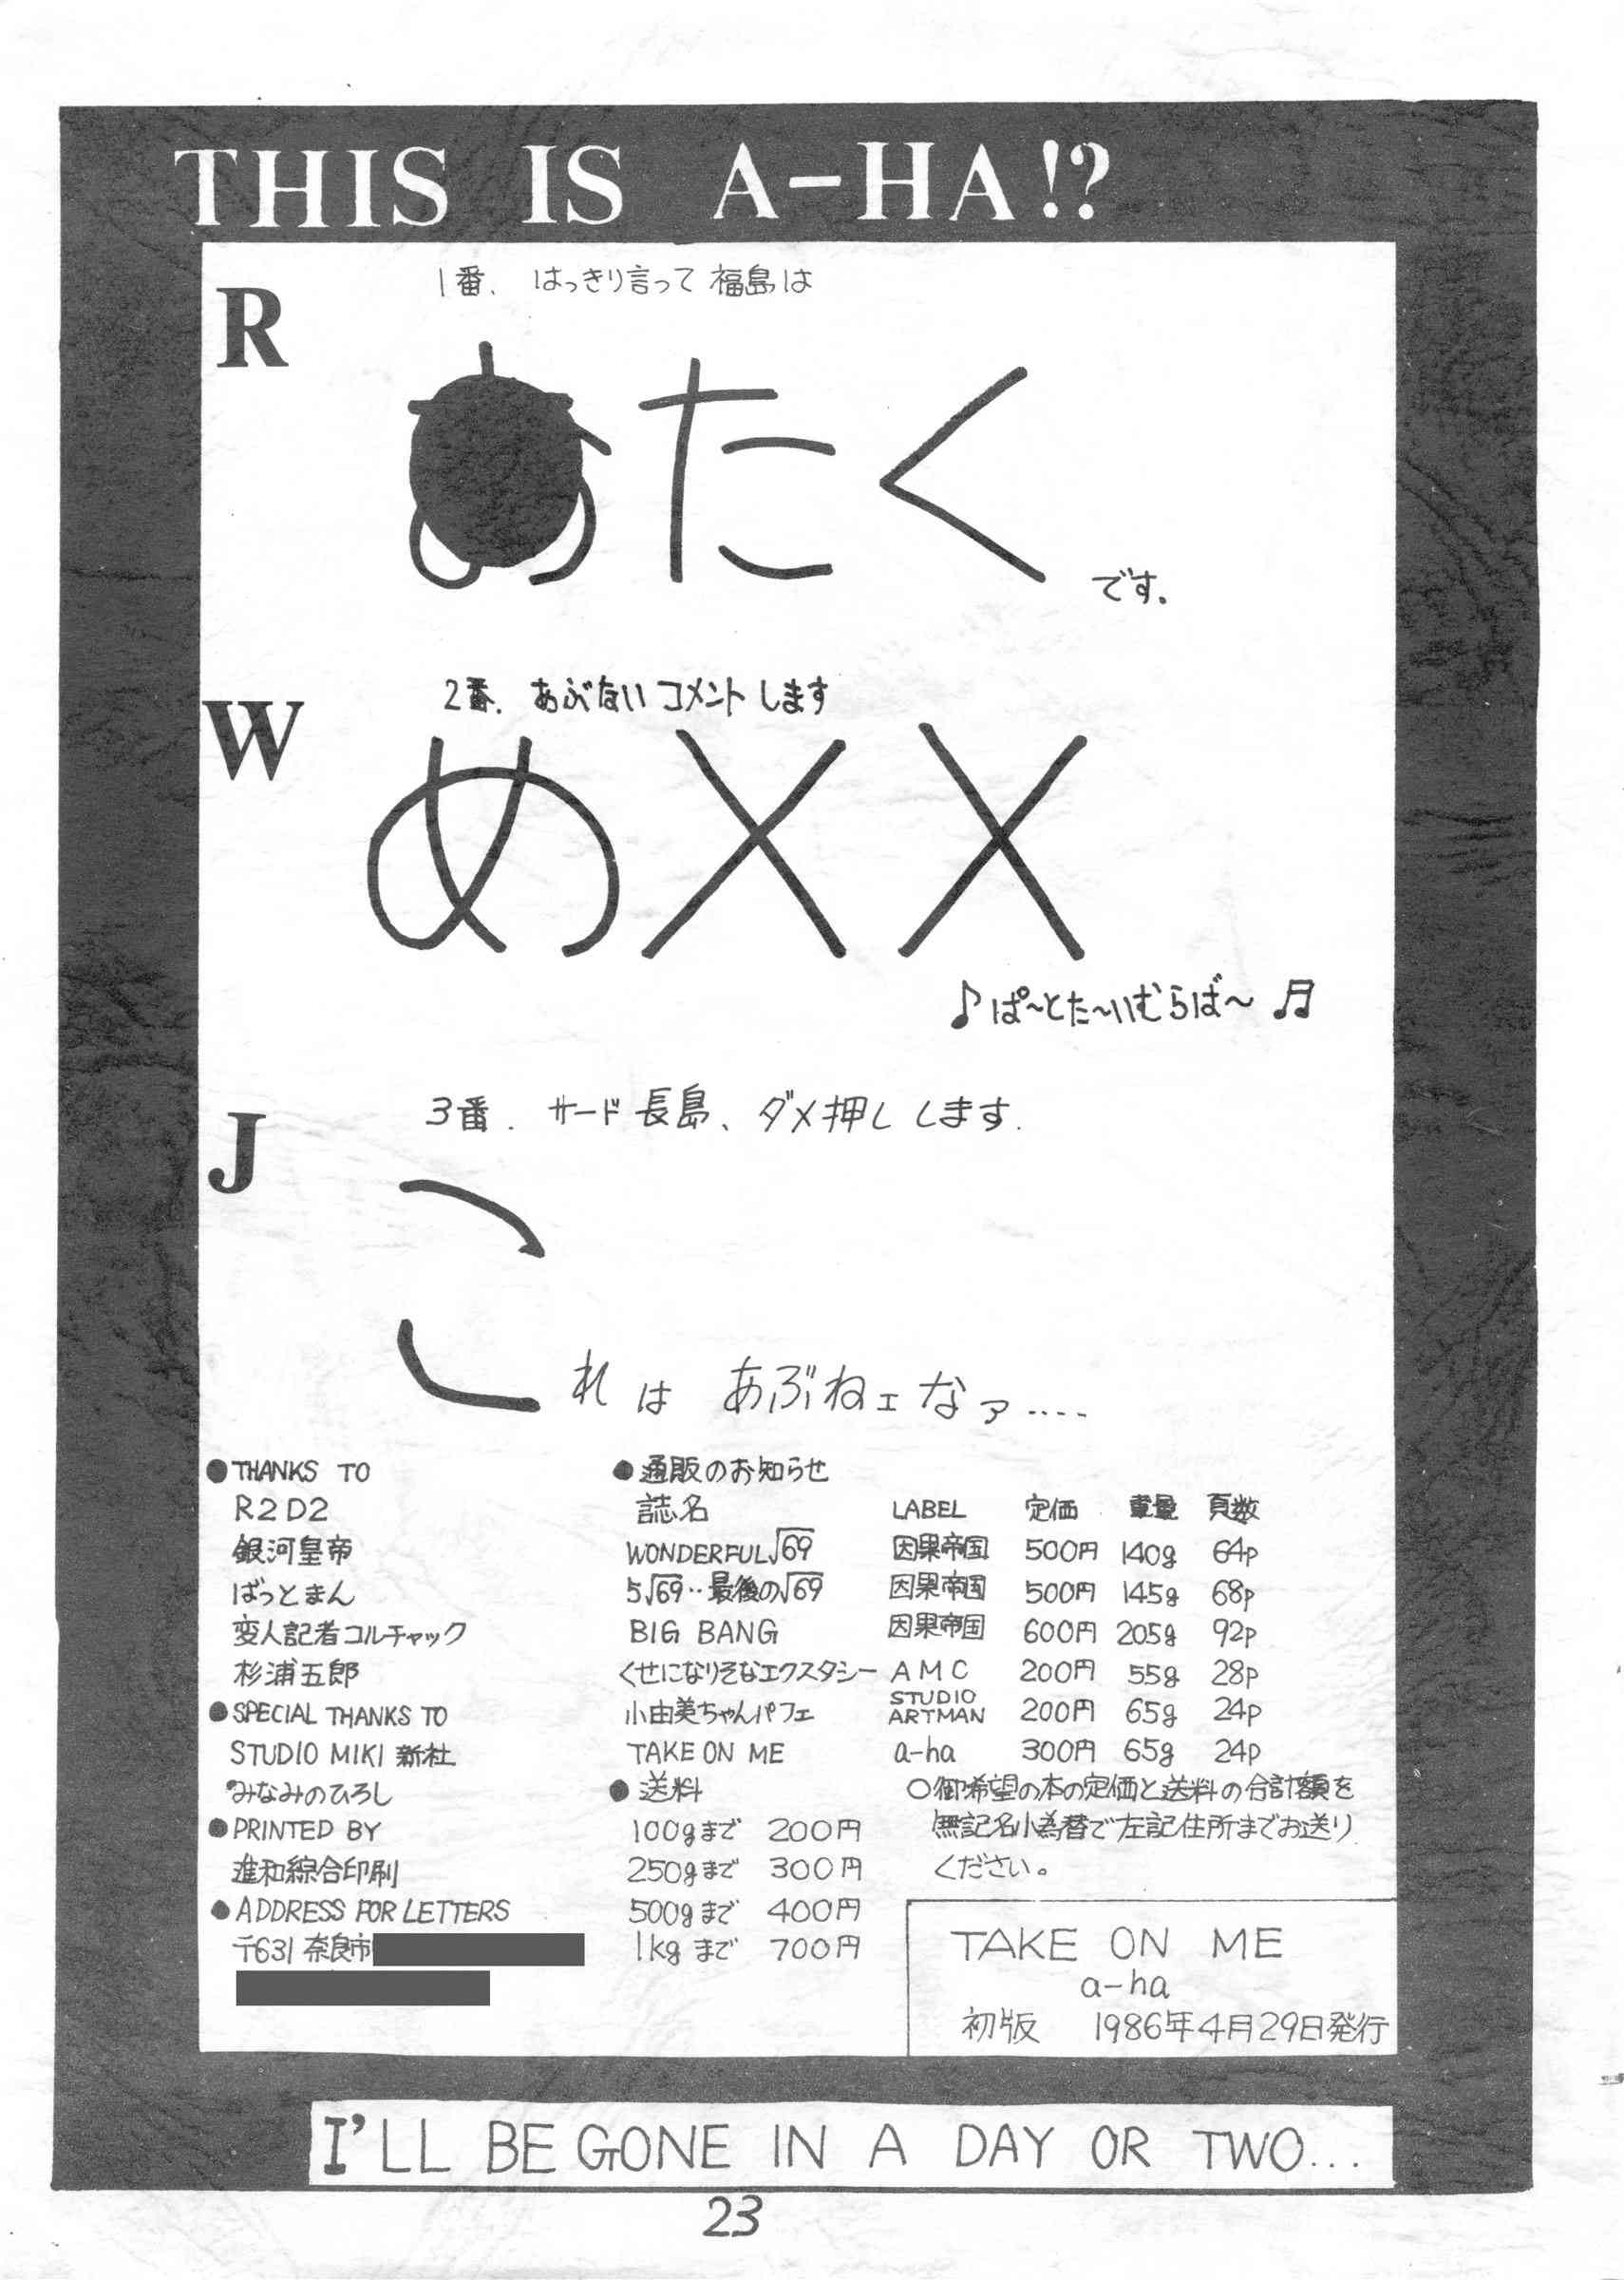 THIS IS A-HA!?
R
1番. はっきり言って福島は
たく
です.
W
2番. あぶないコメントします
めXX
♪ぱ〜とた〜いむらば〜♬
J
3番. サード長島、ダメ押しします.
これは あぶねェなァ‥‥
●THANKS TO
R2D2
銀河皇帝
ばっとまん
変人記者コルチャック
杉浦五郎
●SPECIAL THANKS TO
STUDIO MIKI 新社
みなみのひろし
●PRINTED BY
進和綜合印刷
●ADDRESS FOR LETTERS
〒631 奈良市
●通販のお知らせ
誌名 LABEL 定価 重量 頁数
WONDERFUL√69 因果帝国 500円 140g 64p
5√69‥最後の√69 因果帝国 500円 145g 68p
BIG BANG 因果帝国 600円 205g 92p
くせになりそなエクスタシー AMC 200円 55g 28p
小由美ちゃんパフェ STUDIO ARTMAN 200円 65g 24p
TAKE ON ME a-ha 300円 65g 24p
●送料
100gまで 200円
250gまで 300円
500gまで 400円
1kgまで 700円
○御希望の本の定価と送料の合計額を
無記名小為替で左記住所までお送り
ください。
TAKE ON ME
a-ha
初版 1986年4月29日発行
I'LL BE GONE IN A DAY OR TWO...
23